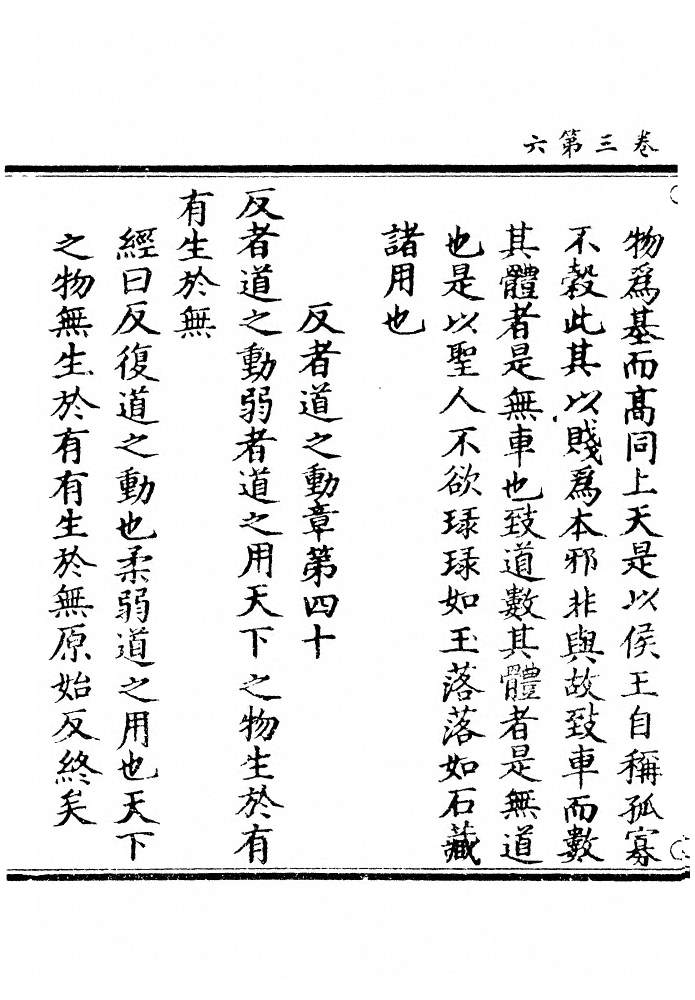 卷三第六
物爲基而髙同上天是以侯王自稱孤寡
不榖此其以賤爲本邪非與故致車而數
其體者是無車也致道數其體者是無道
也是以聖人不欲琭琭如玉落落如石藏
諸用也
反者道之動章第四十
反者道之動弱者道之用天下之物生於有
有生於無
經曰反復道之動也柔弱道之用也天下
之物無生於有有生於無原始反終矣